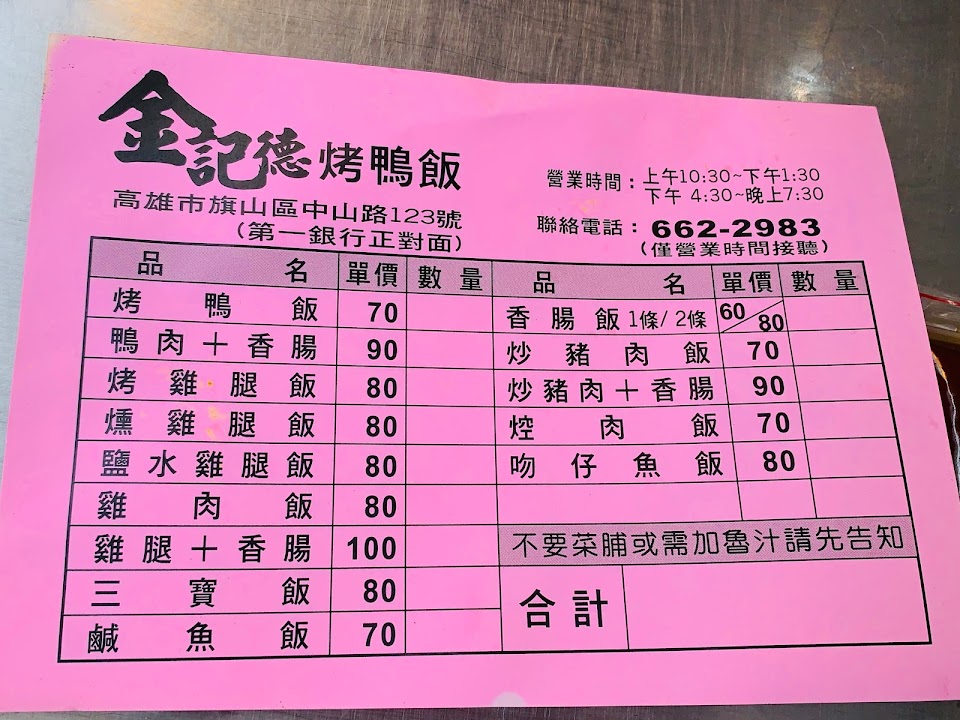 金記德烤鴨飯
高雄市旗山區中山路123號
(第一銀行正對面)
營業時間：上午10:30~下午1:30
下午 4:30~晚上7:30
聯絡電話：662-2983
(僅營業時間接聽)
品名 單價 數量
烤鴨飯 70
鴨肉＋香腸 90
烤雞腿飯 80
燻雞腿飯 80
鹽水雞腿飯 80
雞肉飯 80
雞腿＋香腸 100
三寶飯 80
鹹魚飯 70
品名 單價 數量
香腸飯 1條/2條 60/80
炒豬肉飯 70
炒豬肉＋香腸 90
焢肉飯 70
吻仔魚飯 80
不要菜脯或需加魯汁請先告知
合計